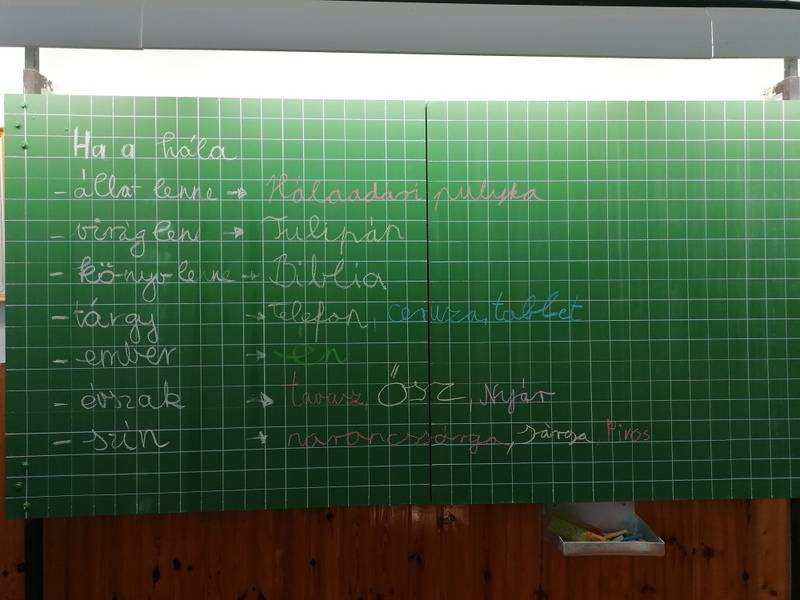 Ha a hála
- állat lenne → Hálaadási pulyka
- virág lenn → Tulipán
- könyv lenne → Biblia
- tárgy → Telefon, ceruza, tablet
- ember → én
- évszak → tavasz, ŐSZ, Nyár
- szín → narancssárga, sárga Piros